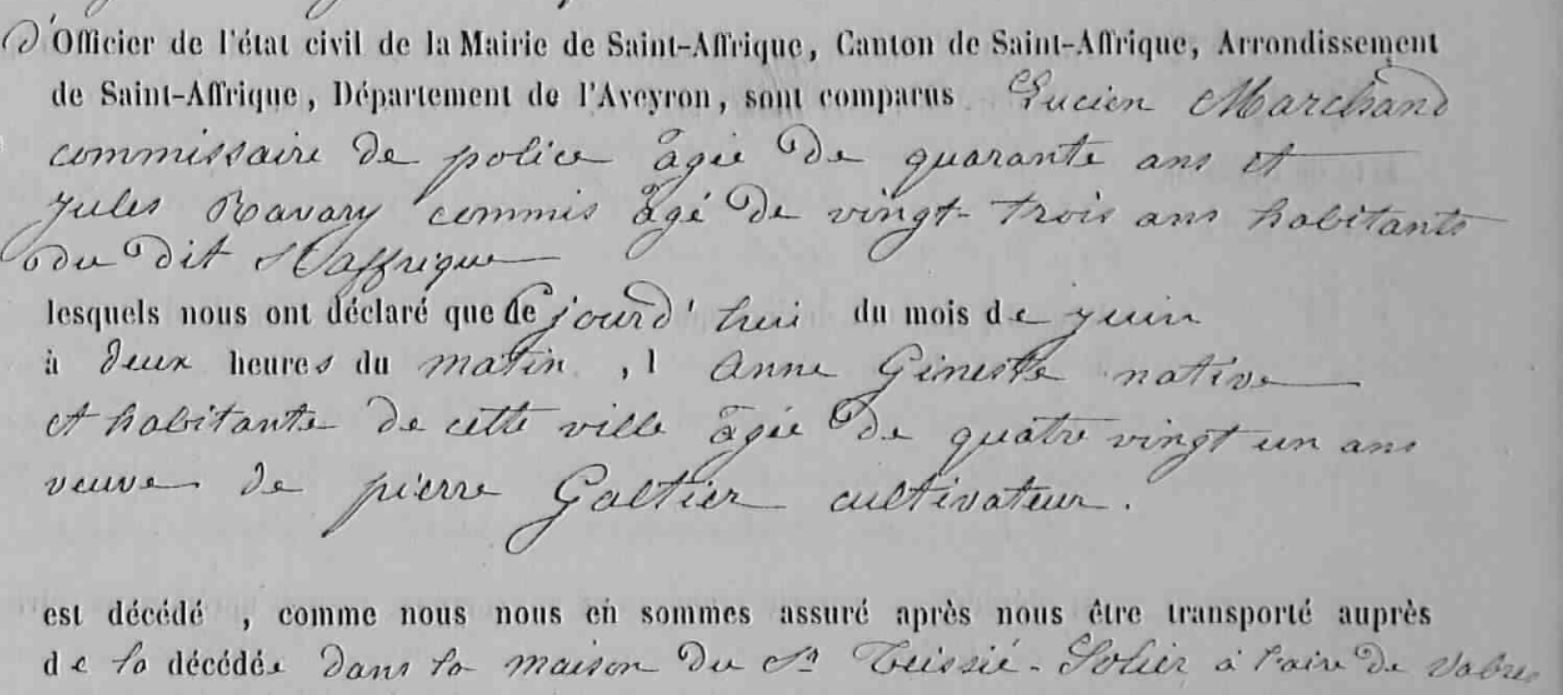 d'Officier de l'état civil de la Mairie de Saint-Affrique, Canton de Saint-Affrique, Arrondissement
de Saint-Affrique, Département de l'Aveyron, sont comparus Lucien Marchand
commissaire de police âgée de quarante ans et
jules Ravary commis âgé de vingt-trois ans habitants
du dit St affrique
lesquels nous ont déclaré que de jourd'hui du mois de juin
à deux heures du matin, l anne Gineste native
et habitante de cette ville âgée de quatre vingt un ans
veuve de pierre Galtier cultivateur.
est décédé, comme nous nous en sommes assuré après nous être transporté auprès
de la décédée dans la maison du Sr Teissié-Solier à l'aire de vabres